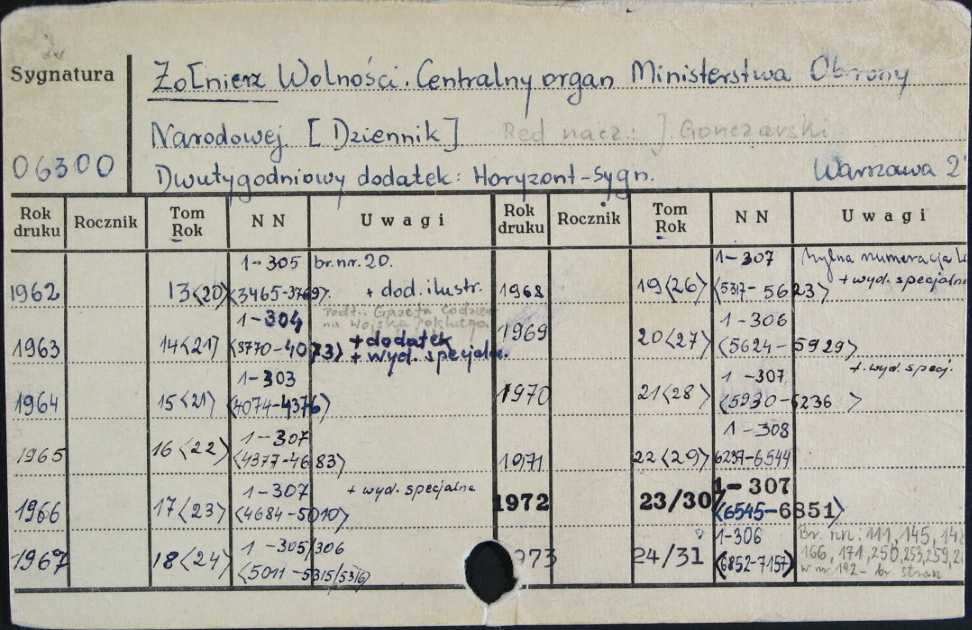 Sygnatura
Żołnierz Wolności. Centralny organ Ministerstwa Obrony
Narodowej [Dziennik] Red nacz.: J. Gonczarski
06300
Dwutygodniowy dodatek: Horyzont-sygn. Warszawa 2
Rok druku Rocznik Tom Rok NN Uwagi Rok druku Rocznik Tom Rok NN Uwagi
1962 13<20> 1-305 <3465-3769> br. nr. 20. + dod. ilustr.
1963 14<21> 1-304 <3770-4073> Podt.: Gazeta Codzien na Wojska + dodatek + wyd. specjalne.
1964 15<21> 1-303 <4074-4376>
1965 16<22> 1-307 <4377-4683>
1966 17<23> 1-307 <4684-5010> + wyd. specjalne
1967 18<24> 1-305/306 <5011-5315/5316>
1968 19<26> 1-307 <5317-5623> mylna numeracja + wyd. specjalne
1969 20<27> 1-306 <5624-5929>
1970 21<28> 1-307 <5930-6236> + wyd. specj.
1971 22<29> 1-308 6237-6544
1972 23/30 1-307 <6545-6851>
973 24/31 1-306 (6852-7157) Br. nr.: 111, 145, 166, 171, 250, 253, 259, w nr. 192 - br. stron